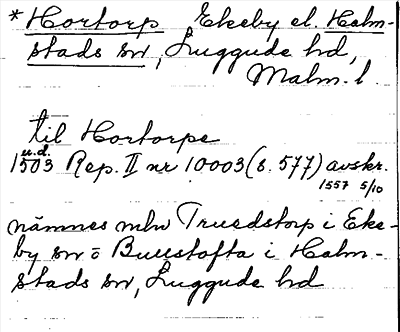 *Hortorp Ekeby el. Halm-
stads sn, Luggude hd,
Malm. l.
til Hortorpe
u.d.
1503 Rep. II nr 10003 (s. 577) avskr.
1557 5/10
nämnes mlw Truedstorp i Eke-
by sn o Buustofta i Halm-
stads sn, Luggude hd